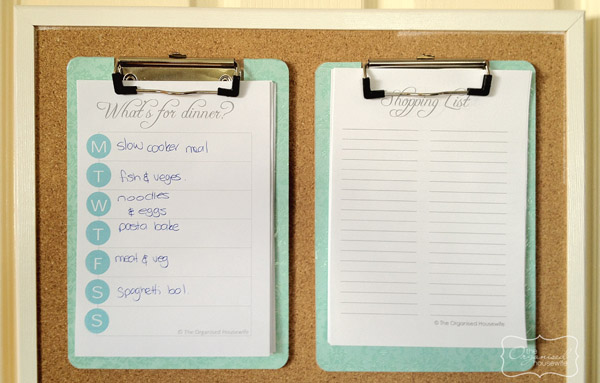 What's for dinner?
M slow cooker meal
T fish & veges.
W noodles
& eggs
T pasta bake
F meat & veg
S spaghetti bol.
S
© The Organised Housewife
Shopping List
© The Organised Housewife
the
Organised
housewife